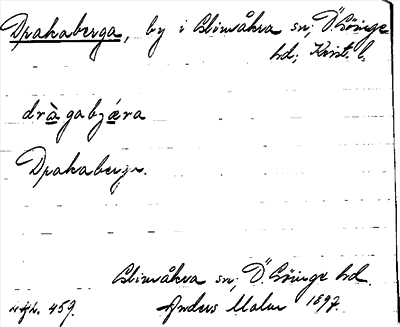 Drakaberga, by i Glimåkra sn; Ö. Göinge
hd; Krist. l.
dràgabjæra
Drakaberga.
Glimåkra sn; Ö. Göinge hd.
459. Anders Malm 1897.